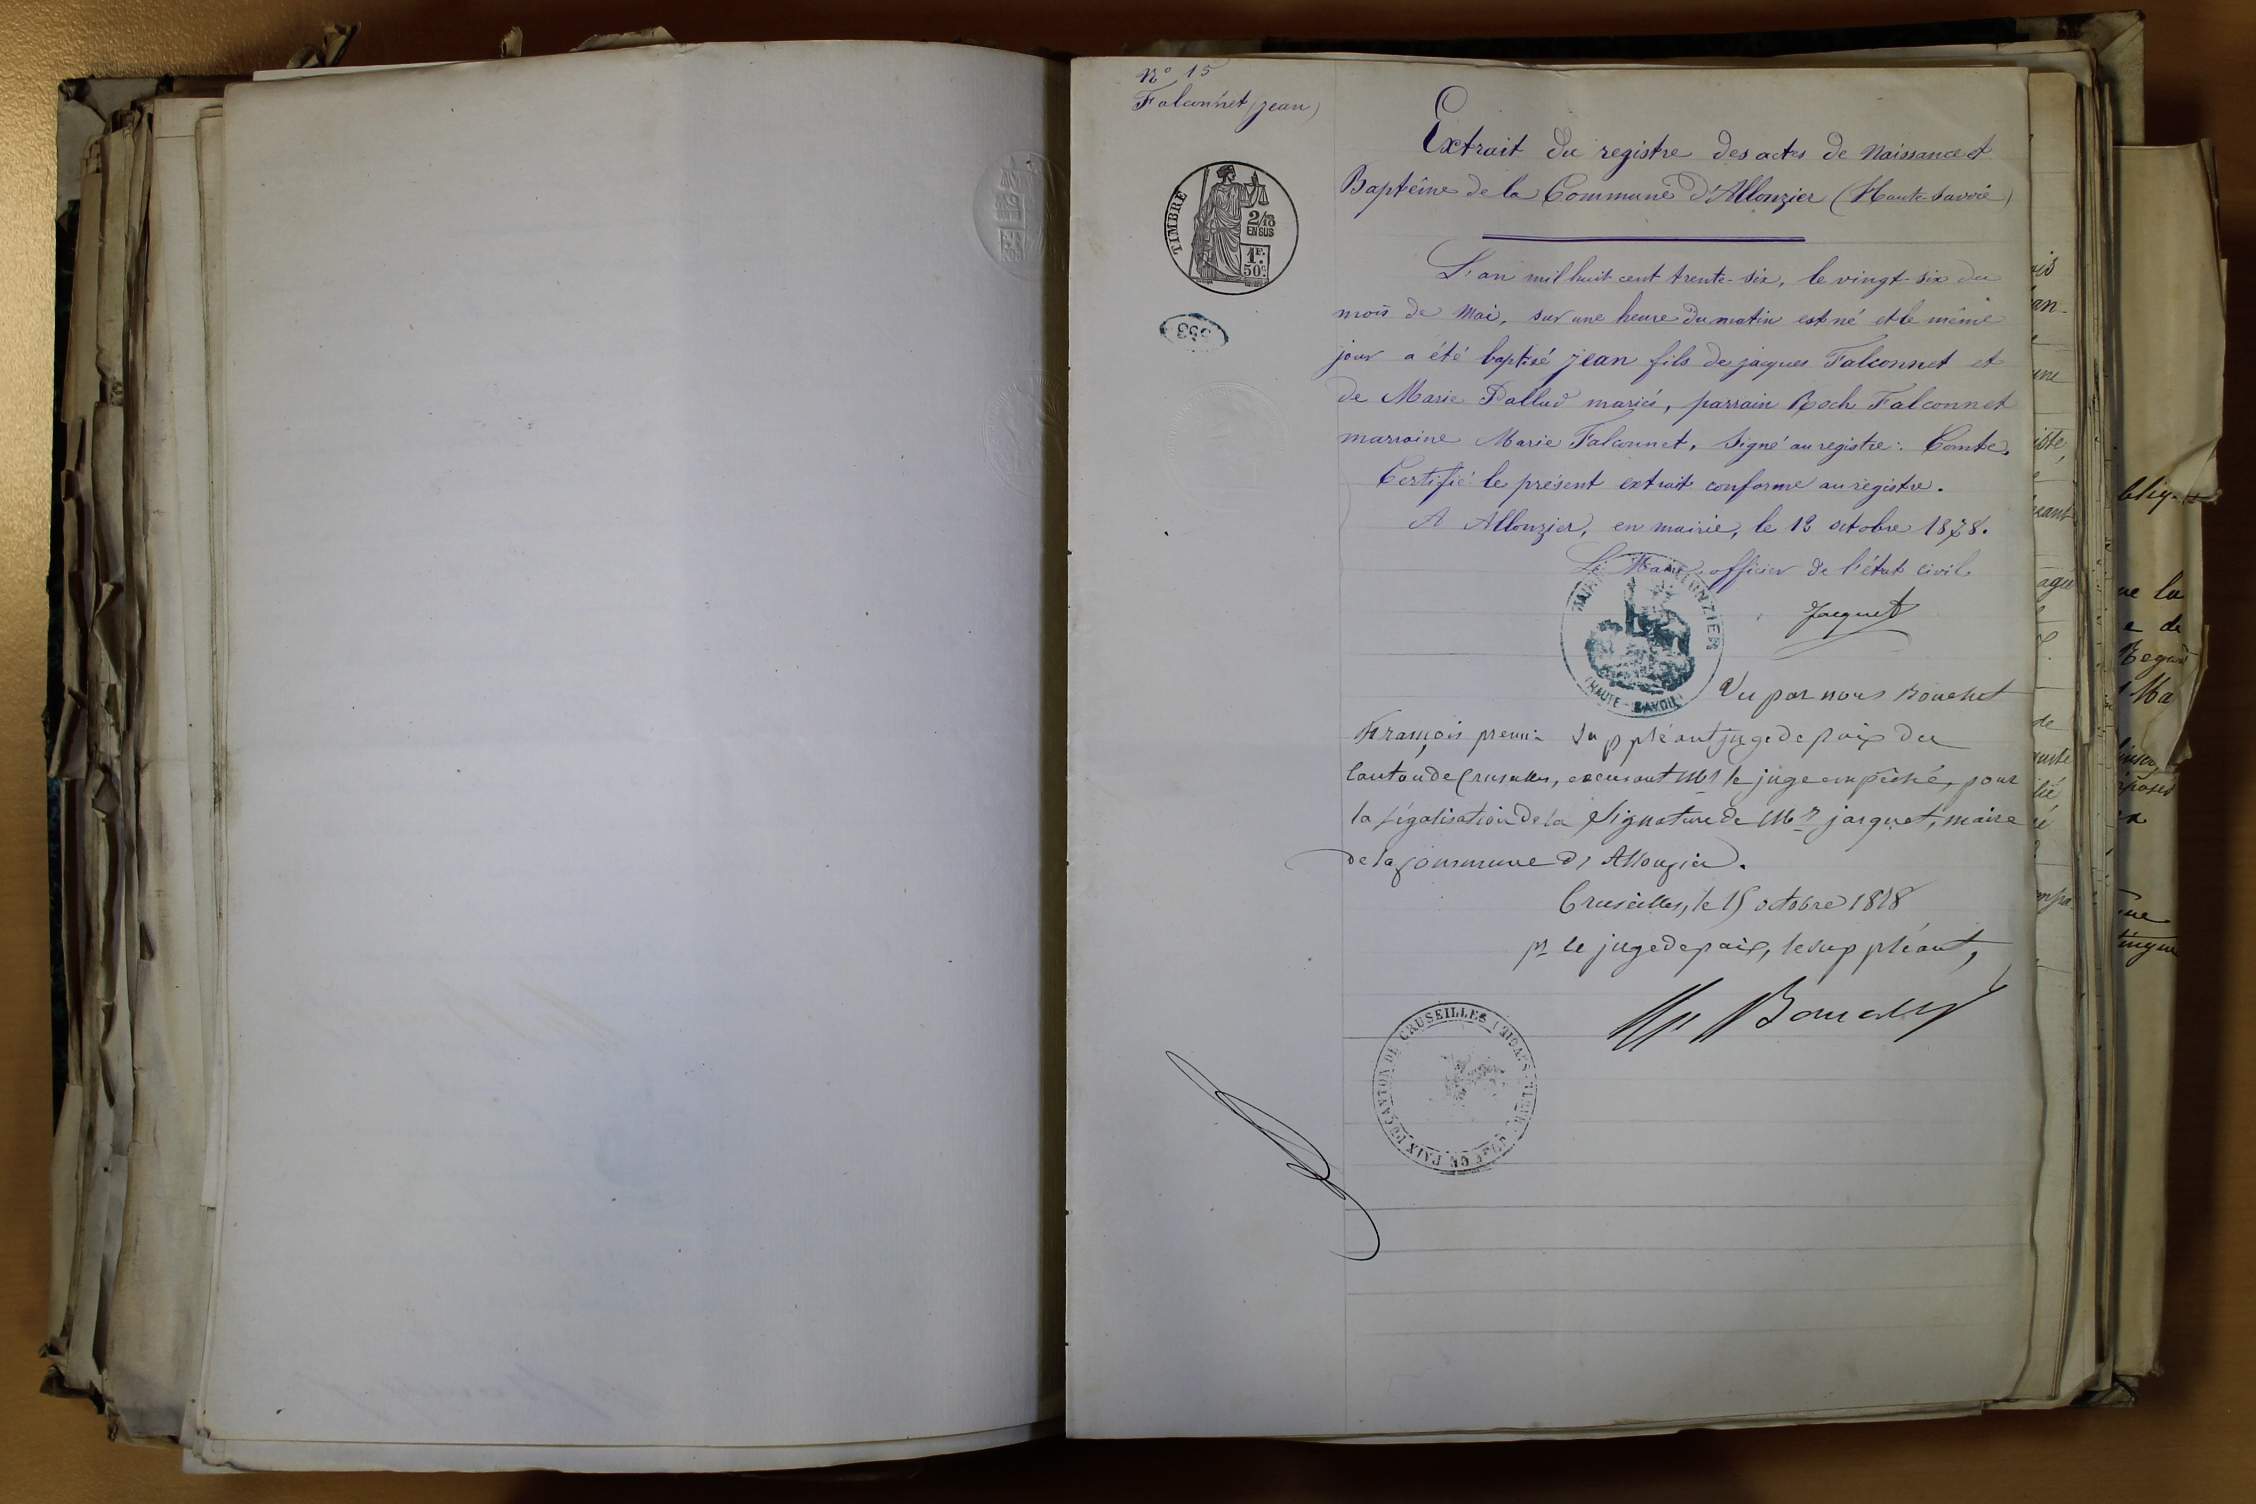 N° 15
Falconnet (jean)
TIMBRE
2/10
EN SUS
1F.
50c.
333
Extrait du registre des actes de Naissance et
Baptême de la Commune d'Allonzier (Haute-Savoie)
L'an mil huit cent trente-six, le vingt-six du
mois de Mai, sur une heure du matin est né et le même
jour a été baptisé jean fils de jacques Falconnet et
de Marie Pallud mariés, parrain Roch Falconnet
marraine Marie Falconnet, Signé au registre : Comte.
Certifié le présent extrait conforme au registre.
A Allonzier, en mairie, le 12 octobre 1878.
Le Maire officier de l'état civil
Jacquet
MAIRIE D'ALLONZIER
(HAUTE-SAVOIE)
Vu par nous Bouchet
François premier Suppléant juge de paix du
Canton de Cruseilles, excusant Mr le juge empêché, pour
la légalisation de la Signature de Mr jacquet, maire
de la Commune d'Allonzier.
Cruseilles, le 15 octobre 1878
pr le juge de paix, le suppléant,
Bouchet
JUGE DE PAIX DU CANTON DE CRUSEILLES (HAUTE-SAVOIE)